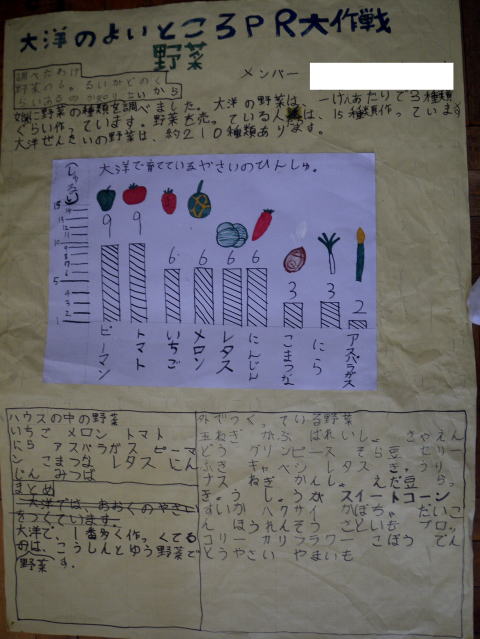 大洋のよいところPR大作戦
野菜
メンバー
調べたわけ
野菜のしゅるいがどのく
らいあるのか知りたいから
畑に野菜の種類を調べました。大洋の野菜は、一けんあたりで3種類
ぐらい作っています。野菜を売っている人は、15種類作っています
大洋ぜんたいの野菜は、約210種類あります。
大洋で育てているやさいのひんしゅ。
(しゅるい)
15
10
5
1
9
9
6
6
6
6
3
3
2
ピーマン
トマト
いちご
メロン
レタス
にんじん
こまつな
にら
アスパラガス
ハウスの中の野菜
いちご メロン トマト
にら アスパラガス ピーマ
ン こまつな レタス にん
じん みつば
まとめ
大洋では、あおくのやさい
をつくています。
大洋で、1番多く作ってる
のは、こうしんとゆう野菜で
野菜 す。
外でつくっている野菜
玉ねぎ かぶ ばれいしょ さやえん
どう グリンピース そら豆 セリー
ふき キャベジ レタス きゅうり
ナス ねぎ かんしょ えだ豆 らっ
きょう しょうが スイートコーン
すいか ハクサイ かぼちゃ だいこ
ん ほうれんそう さといも ブロッ
コリー カリフラワー ごぼう でん
とうやさい やまいも